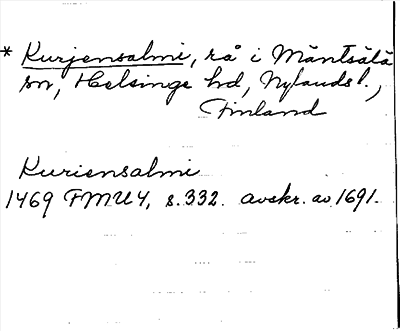 * Kurjensalmi, rå i Mäntsälä
sn, Helsinge hd, Nylands l.,
Finland
Kuriensalmi
1469 FMU 4, s. 332. avskr. av 1691.